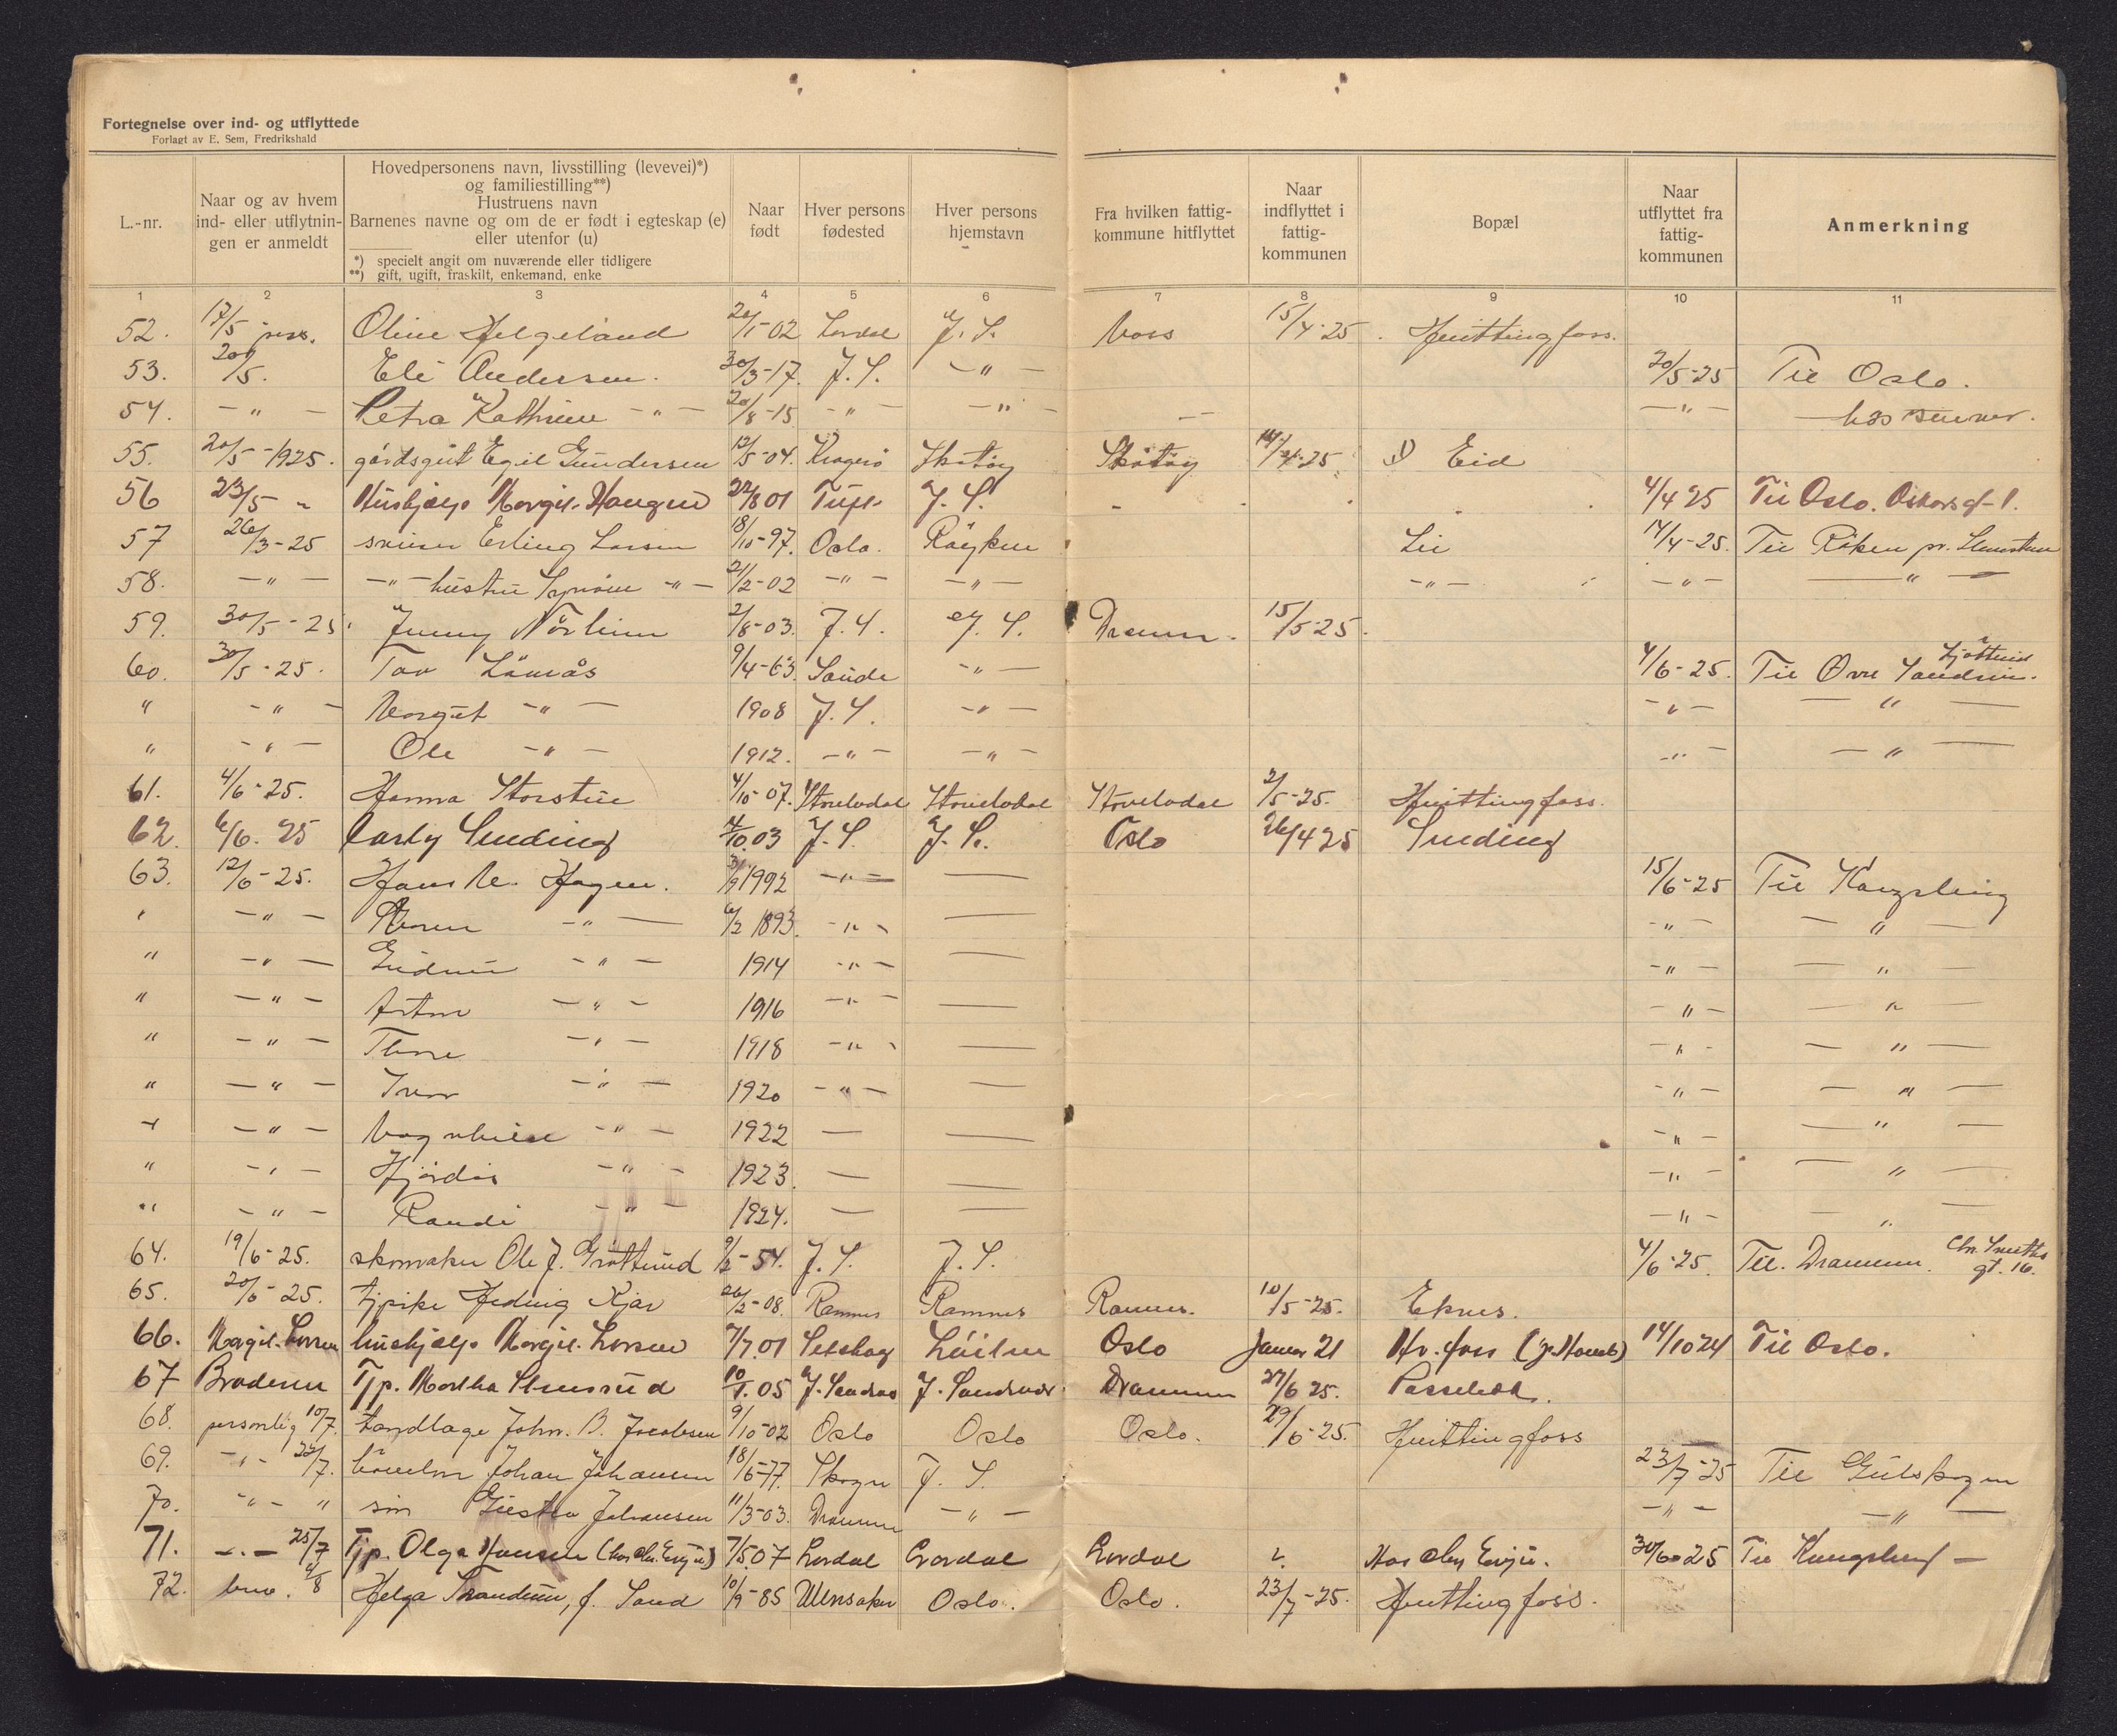 Fortegnelse over ind- og utflyttede
Forlagt av E. Sem, Fredrikshald
L.-nr.
Naar og av hvem ind- eller utflytnin- gen er anmeldt
Hovedpersonens navn, livsstilling (levevei)*)
og familiestilling**)
Hustruens navn
Barnenes navne og om de er født i egteskap (e)
eller utenfor (u)
*) specielt angit om nuværende eller tidligere
**) gift, ugift, fraskilt, enkemand, enke
Naar født
Hver persons fødested
Hver persons hjemstavn
Fra hvilken fattig- kommune hitflyttet
Naar indflyttet i fattig- kommunen
Bopæl
Naar utflyttet fra fattig- kommunen
Anmerkning
1 2 3 4 5 6 7 8 9 10 11
52. 17/5 pers. Oline Helgeland 20/1-02 Lardal J. S. Voss 15/4-25. Hvittingfoss.
53. 20/5. Eli Andersen. 30/3-17. J. S. -"- 20/5-25 Til Oslo.
54. -"- Petra Kathrine -"- 20/8-15 -"- -"- -"-
55. 20/5-1925. gårdsgut Egil Gundersen 12/5-04. Kragerø Skåtøy Skåtøy 14/4-25. Eid
56 23/5 " Hushjelp Margit Haugen 22/8 01 J. S. 4/4 25 Til Oslo.
57 26/3-25 Erling Larsen 18/10-97. Oslo. Røyken Lie 14/4-25. Til Røken
58. -"- -"- hustru -"- 21/2-02 -"- -"- -"- -"- -"-
59. 30/5-25. Jenny 2/8-03. J. S. J. S. Dramm. 15/5-25.
60. 30/5-25. Tov 9/4-63. Sande -"- 4/6-25. Til Øvre Sandsvær.
" -"- Margit -"- 1908 J. S. -"- -"- -"-
" -"- Ole -"- 1912. -"- -"- -"- -"-
61. 4/6-25. Hanna Storstue 4/10-07. Strandal 2/5-25. Hvittingfoss.
62. 6/6. 25 Carly Sunding 4/10.03 J. S. J. S. Oslo 26/4 25 Sunding
63. 12/6-25. Hans M. Hagen. 3/9 1992 -"- — 15/6-25 Til Kongsberg
" -"- Maren -"- 6/2 1893. -"- — -"- -"-
" -"- Gudrun -"- 1914 -"- — -"- -"-
" -"- Artur -"- 1916 -"- — -"- -"-
" -"- Thore -"- 1918 -"- — -"- -"-
" -"- Ivar -"- 1920 -"- — -"- -"-
" -"- Ragnhild -"- 1922 — — -"- -"-
" -"- Hjørdis -"- 1923. — — -"- -"-
" -"- Randi -"- 1924. — — -"- -"-
64. 19/6-25. skomaker Ole J. Grøtterud 9/2-54. J. S. J. S. 4/6-25. Til. Drammen. Chr. Smiths gt. 16.
65. 20/6-25. tjpike Hedvig Kjær 26/2-08. Ramnes Ramnes Ramnes. 10/5-25. Eknes.
66. Margit Larsen hushjelp Margit Larsen 7/7.01 Setskog Oslo Januar 21 Hv. foss 14/10 24 Til Oslo.
67 Broderen Tjp. Martha 10/1.05 J. Sandsvær J. Sandsvær Drammen 27/6 25. Passebekk.
68. personlig 10/7. tandlæge John. B. Jacobsen 9/10-02 Oslo Oslo Oslo. 29/6-25. Hvittingfoss
69. -"- 22/7. Johan Johansen 18/6-77. Skoger J. S. 23/7-25 Til Gulskogen
70. -"- " søn Gustav Johansen 11/3-03. Drammen -"- -"- -"-
71. -"- 25/7 Tjp. Olga Hansen 7/5 07 Lardal Lardal Lardal ?. 30/6 25 Til Kongsberg —
72. brev. 4/8 Helga Trandum, f. Sand 10/9-85 Ullensaker Oslo. Oslo. 23/7-25. Hvittingfoss.